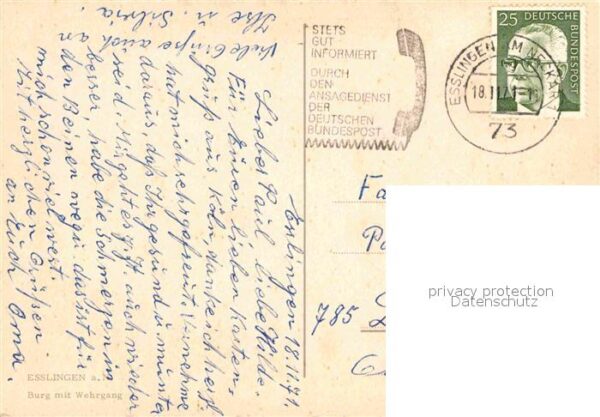 Esslingen 18.11.71.
Lieber Paul, liebe Hilde.
Für Euren lieben Karten-
gruß aus Köln, danke ich herzl.
hat mich sehr gefreut. Vernehme
daraus, daß Ihr gesund u. munter
seid. Mir geht es z. Zt. auch wieder
besser, habe die Schmerzen in
den Beinen weg u. das ist für
mich schon viel wert.
Mit herzlichen Grüßen
an Euch Oma.
Viele Grüße auch an
Ihre u. Silvia.
STETS
GUT
INFORMIERT
DURCH
DEN
ANSAGEDIENST
DER
DEUTSCHEN
BUNDESPOST
25 DEUTSCHE
BUNDESPOST
ESSLINGEN AM NECKAR 1
18.11.71
73
Fa
785
privacy protection
Datenschutz
ESSLINGEN a.
Burg mit Wehrgang